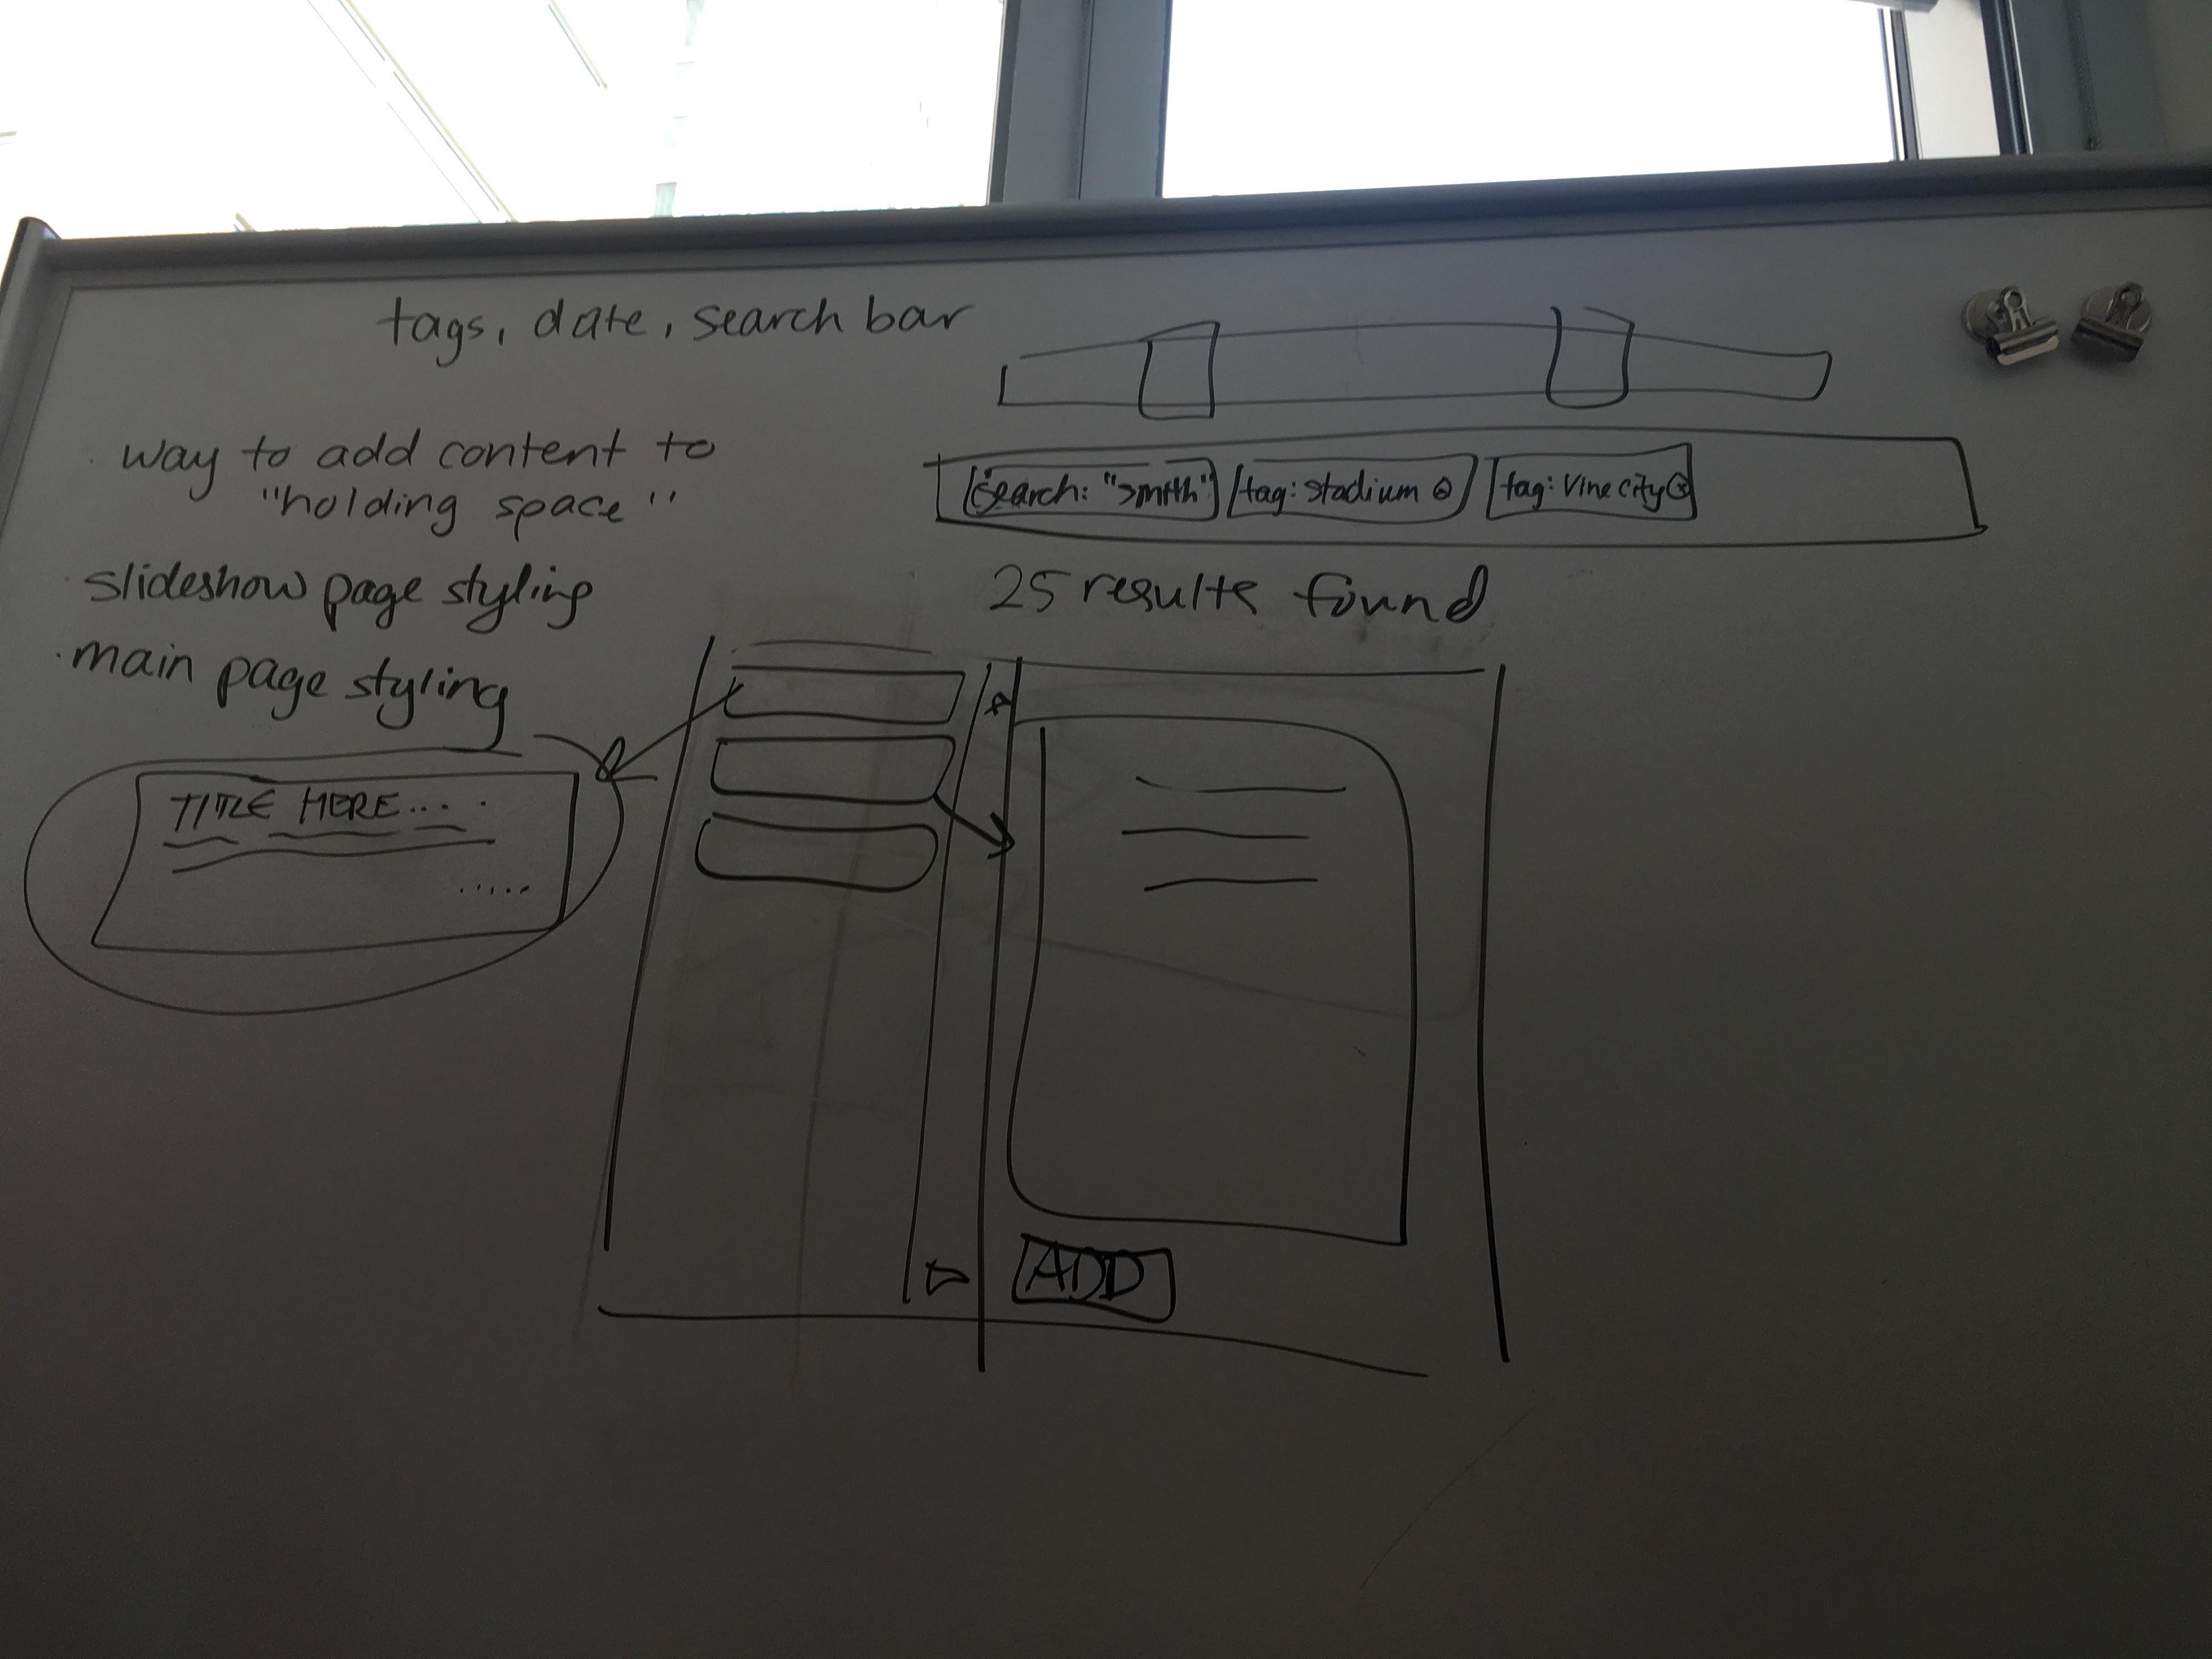 tags, date, search bar
· way to add content to
"holding space"
· slideshow page styling
· main page styling
search: "smith"
tag: stadium ⊗
tag: Vine City ⊗
25 results found
TITLE HERE....
.....
ADD